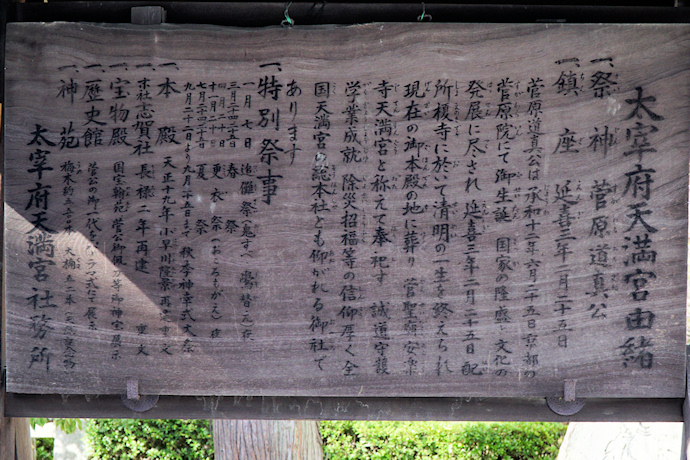 太宰府天満宮由緒
一、祭神 菅原道真公
一、鎮座 延喜三年二月二十五日
菅原道真公は 承和十二年六月二十五日京都の
菅原院にて御生誕 国家の隆盛と文化の
発展に尽され 延喜三年二月二十五日 配
所榎寺に於て清明の一生を終えられ
現在の御本殿の地に葬り 菅聖廟 安楽
寺天満宮と称えて奉祀す 誠道守護
学業成就 除災招福等の信仰厚く全
国天満宮の総本社とも仰がれる御社で
あります
一、特別祭事
一月七日 追儺祭 鬼すべ 鷽替え神事
三月二十四、二十五日 春祭
四月二十日 更衣祭
七月二十四、二十五日 夏祭
九月二十二日より九月二十五日まで 秋季神幸式大祭
一、本殿 天正十九年小早川隆景再建 重文
末社志賀社 長禄二年再建 重文
一、宝物殿 国宝翰苑 菅公御佩刀等御神宝展示
一、歴史館 菅公の御一代をジオラマ式で展示
一、神苑
太宰府天満宮社務所